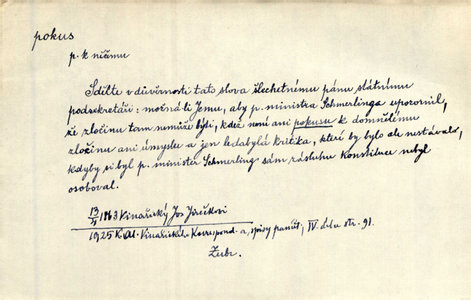 pokus
p. k ničimu
Sdělte v důvěrnosti tato slova šlechetnému pánu státnímu
podsekretáři: možná-li Jemu, aby p. ministra Schmerlinga upozornil,
že zločinu tam nemůže býti, kdež není ani pokusu k domnělému
zločinu ani úmyslu a jen ledabylá kritika, které by bylo ale nestávalo,
kdyby si byl p. ministr Schmerling sám zásluhu Konstituce nebyl
osoboval.
13/4 1863 Vinařický Jos Jirečkovi
1925 K. Al. Vinařického Korrespond. a spisy pamět. IV. dílu str. 91.
Zubr.